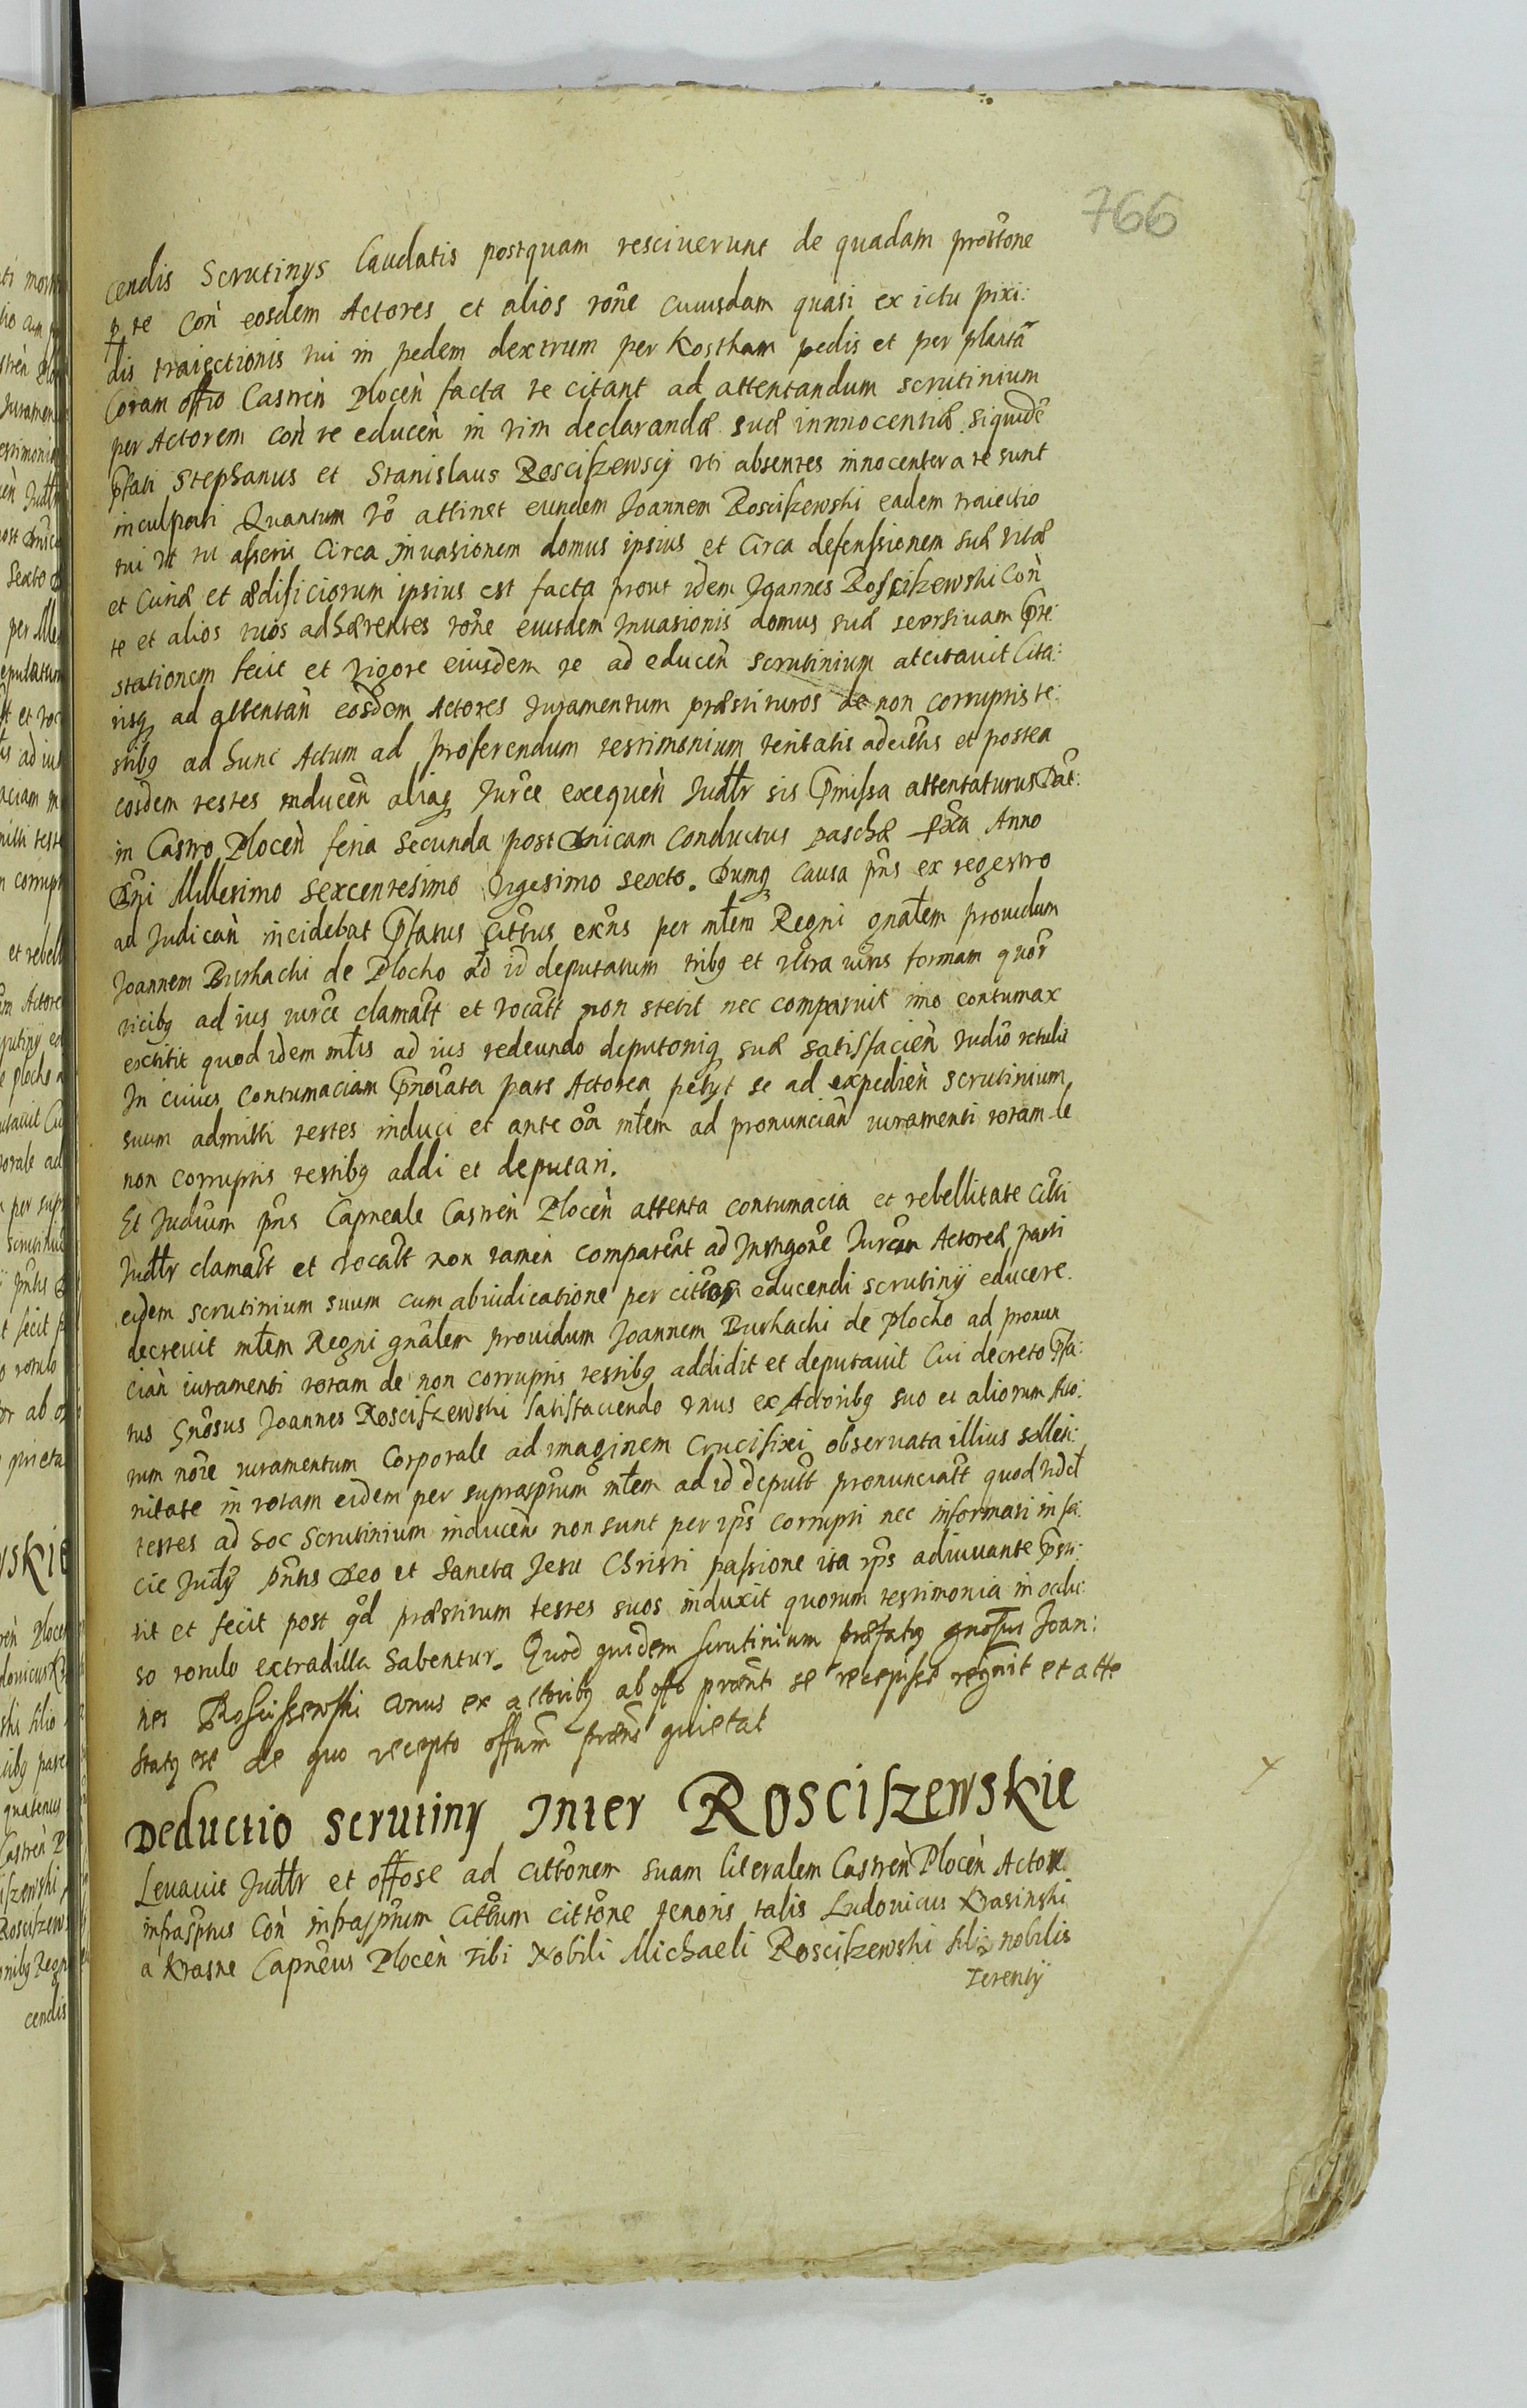 766
cendis Scrutinys Laudatis postquam resciuerunt de quadam prottone
p te con eosdem Actores et alios rone cuiusdam quasi ex ictu pixi:
dis traiectionis tui in pedem dextrum per Kostham pedis et per planta
Coram offio Castren Plocen facta te citant ad attentandum scrutinium
per Actorem con te educen in vim declarandæ suæ innnocentiæ siquide
pfati Stephanus et Stanislaus Rosciszewscy uti absentes innocenter a te sunt
inculpati Quantum vo attinet eundem Joannem Rosciszewski eadem traiectio
tui ut tu asseris Circa invasionem domus ipsius et Circa defenssionem suæ vitæ
et Curiæ et ædificiorum ipsius est facta prout idem Joannes Rosciszewski Con
te et alios tuos adhærentes rone eiusdem Invasionis domus suæ seorsiuam pte:
stationem fecit et vigore eiusdem te ad educen scrutinium atcitauit Cita:
tisq ad attentan eosdem Actores Juramentum præstituros de non corruptis te:
stibq ad hunc Actum ad proferendum testimonium veritatis adcitis et postea
eosdem testes inducen aliaq Jurce exequen Judlr sis pmissa attentaturus Dat:
in Castro Plocen feria Secunda post Dnicam Conductus paschæ pxa Anno
Dni Millesimo Sexcentesimo Vigesimo Sexto. Dumq Causa pns ex regestro
ad Judican incidebat pfatus Cittus exns per mtem Regni gnalem prouidum
Joannem Burkachi de Plocko ad id deputatum tribq et ultra iuris formam quor
vicibq ad ius iurce clamatt et vocatt non stetit nec comparuit imo contumax
extitit quod idem mtis ad ius redeundo deputoniq suæ satisfacien Iudio retulit
In cuius Contumaciam pnoiata pars Actorea petyt se ad expedien scrutinium
suum admitti testes induci et ante oa mtem ad pronuncian iuramenti rotam de
non corruptis testibq addi et deputari.
Et Judium pns Capneale Castren Plocen attenta contumacia et rebellitate citti
Judlr clamatt et vocatt non tamen comparent ad Instigone Jurcem Actoreæ parti
eidem scrutinium suum cum abiudicatione per cittos educendi scrutinij educere
decreuit mtem Regni gnalem prouidum Joannem Burkachi de Plocko ad pronun
cian iuramenti rotam de non corruptis testibq addidit et deputauit Cui decreto pfa:
tus Gnosus Joannes Rosciszewski Satisfaciendo unus ex Actoribq suo et aliorum Acto:
rum noie iuramentum Corporale ad imaginem Crucifixi obseruata illius sollen:
nitate in rotam eidem per suprasprum mtem ad id deputt pronunciatt quod vidct
testes ad hoc Scrutinium inducen non sunt per ips corrupti nec informati in fa:
cie Judij pntis Deo et Sancta Jesu Christi passione ita ips adiuuante psti:
tit et fecit post qd præstitum testes suos induxit quorum testimonia in occlu:
so rotulo extradilla habentur. Quod quidem scrutinium præfatq gnosus Joan:
nes Rosciszewski unus ex actoribq ab offo prænti se recepisse regnit et atte
statq est de quo recepto offum præns quietat
Deductio scrutiny Inter Rosciszewskie
Leuauit Judlr et offose ad cittonem suam literalem Castren Plocen Actor
infrasptus Con infrasptum Cittum cittone tenoris talis Ludouicus Krasinski
a Krasne Capneus Plocen Tibi Nobili Michaeli Rosciszewski filio nobilis
Terentij